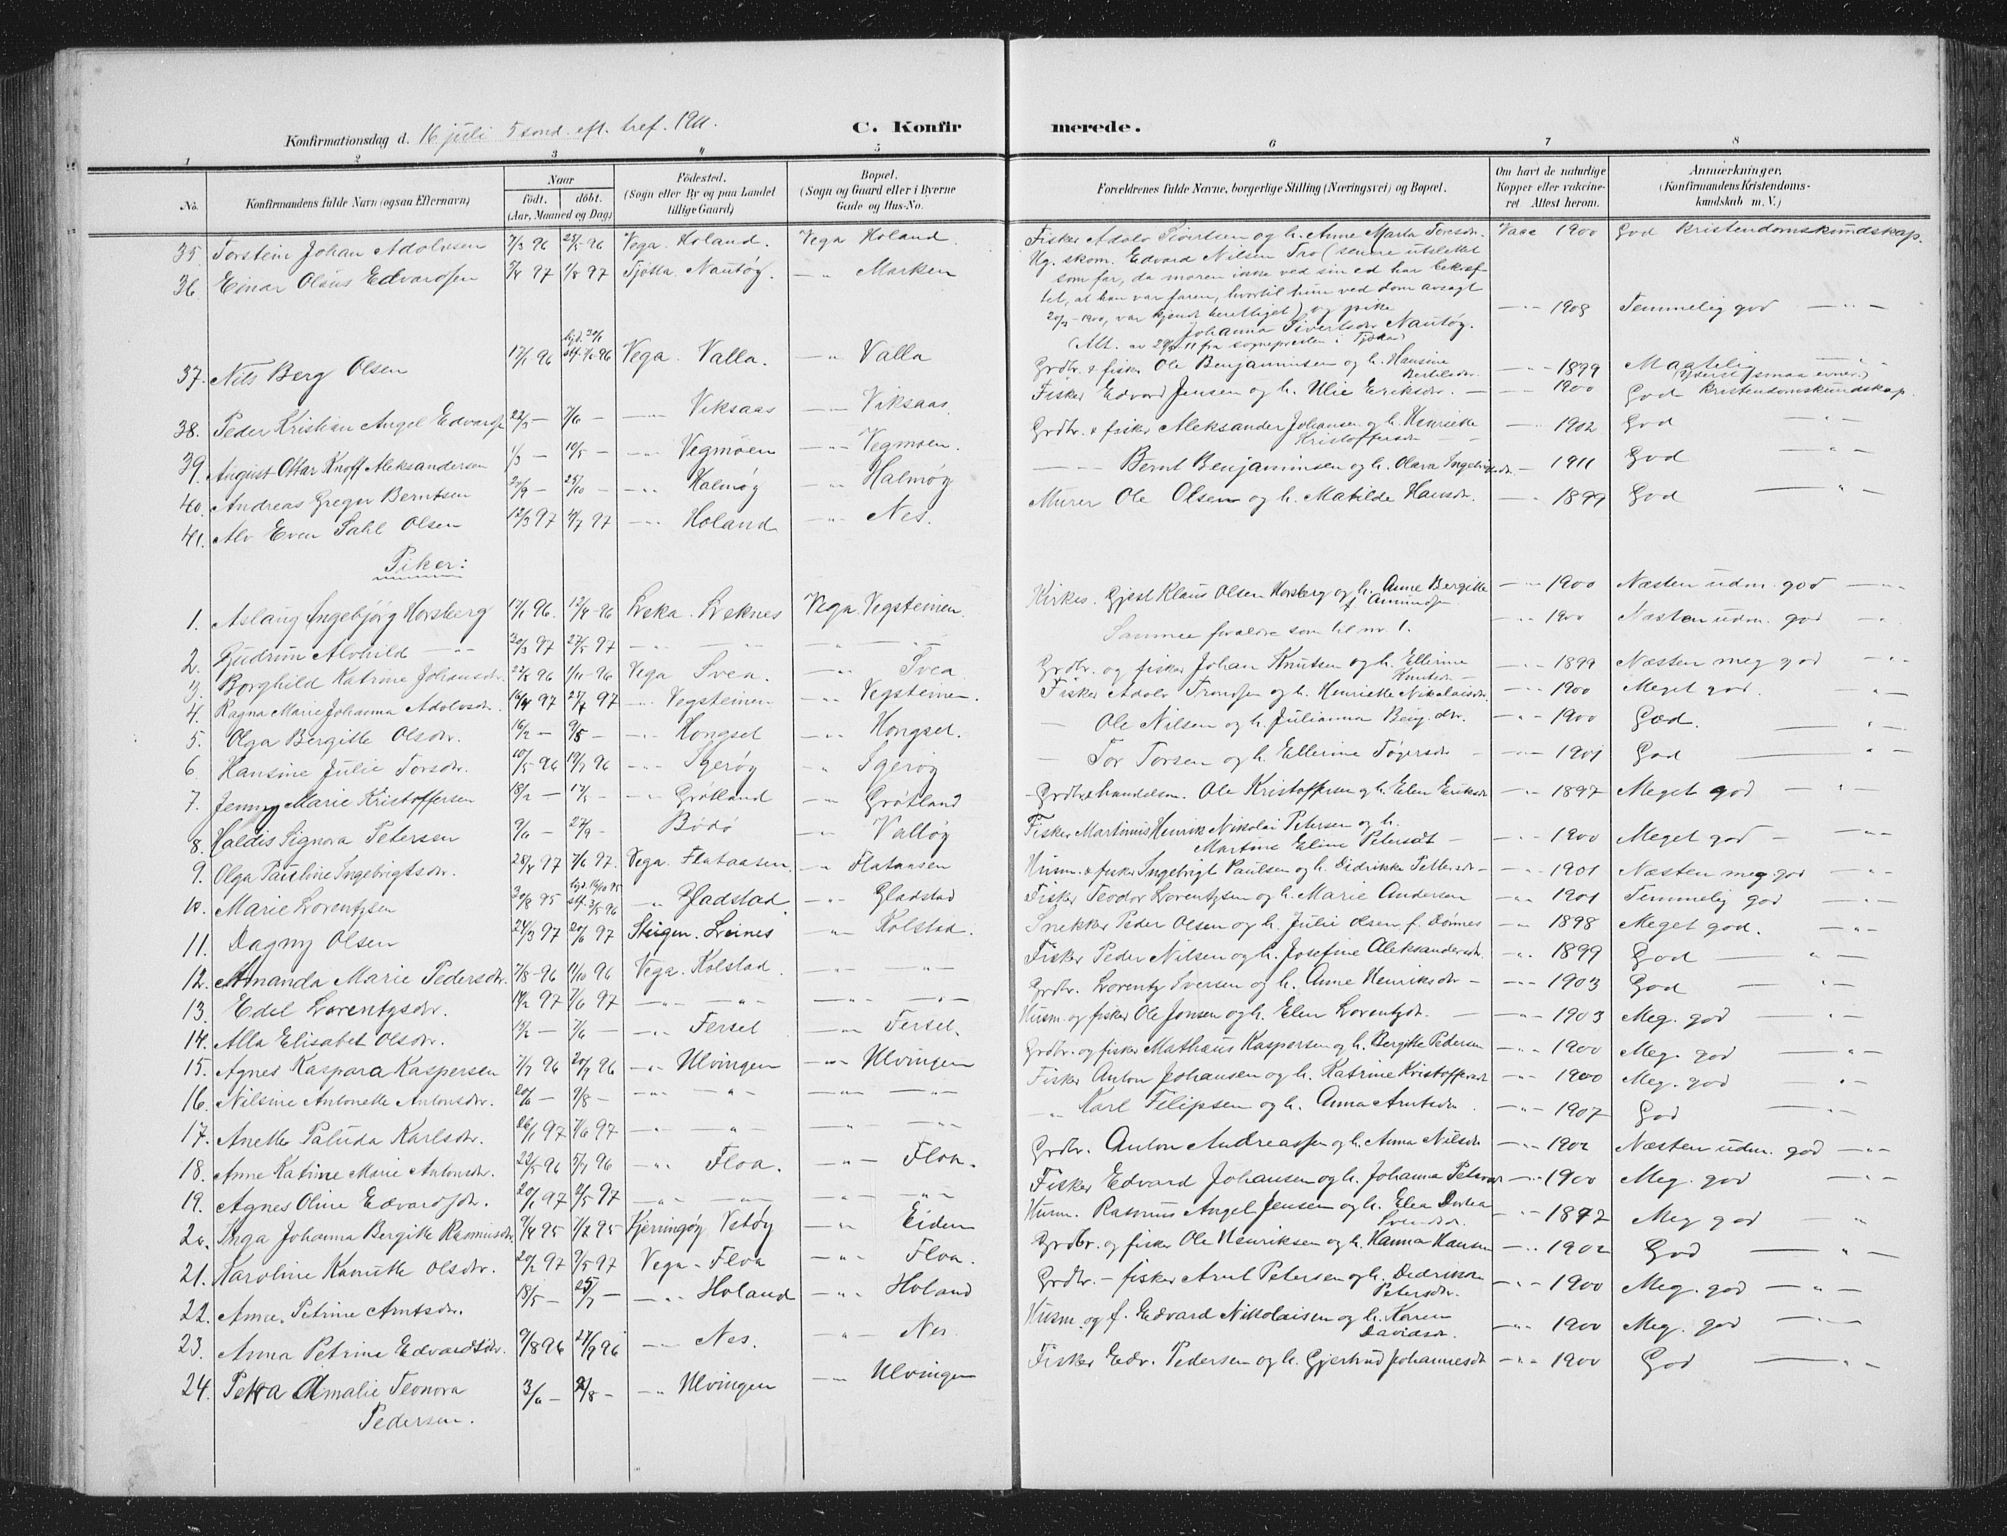 Konfirmationsdag d. 16 juli 5 sønd. eft. tref. 1911. C. Konfirmerede.
1 2 3 4 5 6 7 8
No. Konfirmandens fulde Navn (ogsaa Efternavn) Naar født. døbt. (Aar, Maaned og Dag) Fødested. (Sogn eller By og paa Landet tillige Gaard) Bopæl. (Sogn og Gaard eller i Byerne Gade og Hus-No. Forældrenes fulde Navne, borgerlige Stilling (Næringsvei) og Bopæl. Om havt de naturlige Kopper eller vaccineret. Attest herom. Anmærkninger. (Konfirmandens Kristendomskundskab m. V.)
35 Torstein Johan Adolvsen 7/3 96 25/5-96 Vega. Holand. Vega Holand. Fisker Adolv Sivertsen og h. Anne Marta Torsdr. Vacc 1900 God kristendomskundskap.
36 Einar Olaus Edvardsen 97 97 Tjøtta. Nautøy. -"- Marken Ug. skom. Edvard Nilsen Tro (senere utslettet
som far, da moren ikke ved sin ed har bekræf-
tet, at han var faren, hvortil hun ved dom avsagt
1900, var kjendt berettiget) og pike -"- 1908 Temmelig god -"-
Johanna Sivertsdr Nautøy.
(Att. av fra sognepresten i Tjøtta)
37. Nils Berg Olsen 17/1 96 96 Vega. Valla. -"- Valla Grdbr. & fisker Ole Benjaminsen og h. Hansine Bertilsdr. -"- 1899 Maatelig (Yderst smaa evner)
38. Peder Kristian Angel Edvards. 22/3 - 7/6 - -"- Viksaas -"- Viksaas Fisker Edvard Jensen og h. Ulie Eriksdr. -"- 1900 God kristendomskundskap.
39. August Ottar Knoff Aleksandersen 1/3 - 10/5 - -"- Vegmoen -"- Vegmoen. Grdbr. & fisker Aleksander Johansen og h. Henrikke Kristoffersen -"- 1902 God -"-
40. Andreas Greger Berntsen 27/9 - 25/10 - -"- Halmøy -"- Halmøy -"- Bernt Benjaminsen og h. Olava Ingebrigtsdr. - 1911 God -"-
41. Alv Even Dahl Olsen 12/3 97 4/7 97 -"- Holand -"- Nes. Murer Ole Olsen og h. Matilde Hansdr. -"- 1899 God -"-
Piker:
1. Aslaug Ingebjørg Horsberg 17/1 96. 12/4-96 Leka. Leknes Vega Vegsteinen. Kirkes. Gjest Klaus Olsen Horsberg og h. Anne Bergitte f. Amundsen. -"- 1900 Næsten udm. god -"-
2. Gudrun Alvhild -"- 30/3 97 27/5 97 -"- -"- -"- -"- Samme forældre som til nr. 1. -"- 1900 Næsten udm. god -"-
3. Borghild Katrine Johansdr. 22/8 96 1/11-96 Vega Svea. -"- Svea Grdbr. og fisker Johan Knutsen og h. Ellerine Knutsdr - -"- 1899 Næsten meg god -"-
4. Ragna Marie Johanna Adolvsdr. 97 97 -"- Vegsteinen -"- Vegsteinen. Fisker Adolv Tronsen og h. Henriette Nikolaisdr. -"- 1900 Meget god. -"-
5. Olga Bergitte Olsdr. 16/2 - 9/5 - -"- Hongset -"- Hongset. - Ole Nilsen og h. Julianna Benj.dr. -"- 1900 God. -"-
6. Hansine Julie Torsdr. 10/5 96 19/7 96 -"- Igerøy -"- Igerøy - Tor Torsen og h. Ellerine Tøgersdr - -"- 1901 God -"-
7. Jenny Marie Kristoffersen 18/2 - - -"- Grøtland -"- Grøtland - Grdbr. & handelsm. Ole Kristoffersen og h. Elen Eriksdr -"- 1897 Meget god -"-
8. Haldis Signora Petersen 9/6 - 27/9 - Bodø -"- Valløy Fisker Martinus Henrik Nikolai Petersen og h. Martine Eline Petersdt - -"- 1900 Meget god - -"-
9. Olga Pauline Ingebrigtsdr. 28/4 97 7/6 97. Vega. Flataasen. -"- Flataasen Husm. & fisker Ingebrigt Paulsen og h. Didrikke Pettersdr - -"- 1901 Næsten meg god -"-
10. Marie Lorentzsen 30/8 95 hjd. 13/10 95 stf. 3/5 96 -"- Gladstad. -"- Gladstad Fisker Teodor Lorentzsen og h. Marie Andersen -"- 1901 Temmelig god -"-
11. Dagny Olsen 24/3 97 20/6 97 Steigen. Leines -"- Rolstad. Snekker Peder Olsen og h. Julie Olsen f. Dønnes -"- 1898 Meget god. -"-
12. Amanda Marie Pedersdr. 7/8-96 11/10 96 Vega. Rolstad -"- -"- Fisker Peder Nilsen og h. Josefine Aleksandersdr. -"- 1899 God -"-
13. Edel Lorentzsdr. 14/2 97 7/6 97 -"- -"- -"- -"- Grdbr. Lorentz Iversen og h. Anne Henriksdr - -"- 1903 God -"-
14. Alla Elisabet Olsdr. 13/2 - 7/6 - -"- Ferset -"- Ferset. Husm. og fisker Ole Jonsen og h. Elen Lorentzdr. -"- 1903 Meg. god -"-
15. Agnes Kaspara Kaspersen 1/7 96 20/9 96 -"- Ulvingen -"- Ulvingen Grdbr. og fisker Mathæus Kaspersen og h. Bergitte Pedersen -"- 1900 Meg. god -"-
16. Nilsine Antonette Antonsdr. 20/6 - 9/8 - -"- -"- -"- -"- Fisker Anton Johansen og h. Katrine Kristoffersdr -"- 1900 Meg. god -"-
17. Anette Paluda Karlsdr. 26/1 97 7/6 97 -"- -"- -"- -"- -"- Karl Filipsen og h. Anna Arntsdr. -"- 1907 God -"-
18. Anne Katrine Marie Antonsdr. 22/5 96 5/7 96 -"- Floa. -"- Floa. Grdbr. Anton Andreassen og h. Anna Nilsdr -"- 1902 Næsten udm. god -"-
19. Agnes Oline Edvardsdr. 20/1 97 2/5 97 -"- -"- -"- -"- Fisker Edvard Johansen og h. Johanna Petersdr -"- 1900 Meg. god -"-
20. Inga Johanna Bergitte Rasmusdr. 9/4 95 95 Kjerringøy Vetøy -"- Eidem Husm. Rasmus Angel Jensen og h. Elea Dortea Svendsdr. -"- 1897 Meg god -"-
21. Karoline Kanutte Olsdr. 20/2 97 9/5 97 Vega - Floa -"- Floa. Grdbr. og fisker Ole Henriksen og h. Hanna Hansen -"- 1902 God -"-
22. Anne Petrine Arntsdr. 18/5 - 25/7 - -"- Holand -"- Holand Grdbr. - fisker Arnt Petersen og h. Didrikke Petersdr. -"- 1900 Meg. god -"-
23. Anna Petrine Edvardsdr. 9/8 96 27/9 96 -"- Nes. -"- Nes. Husm. og f. Edvard Nikolaisen og h. Karen Davidsdr. -"- 1900 Meg. god -"-
24. Petra Amalie Leonora 3/6 - 2/8 - -"- Ulvingen -"- Ulvingen Fisker Edv. Pedersen og h. Gjertrud Johannesdr -"- 1900 God -"-
Pedersen.